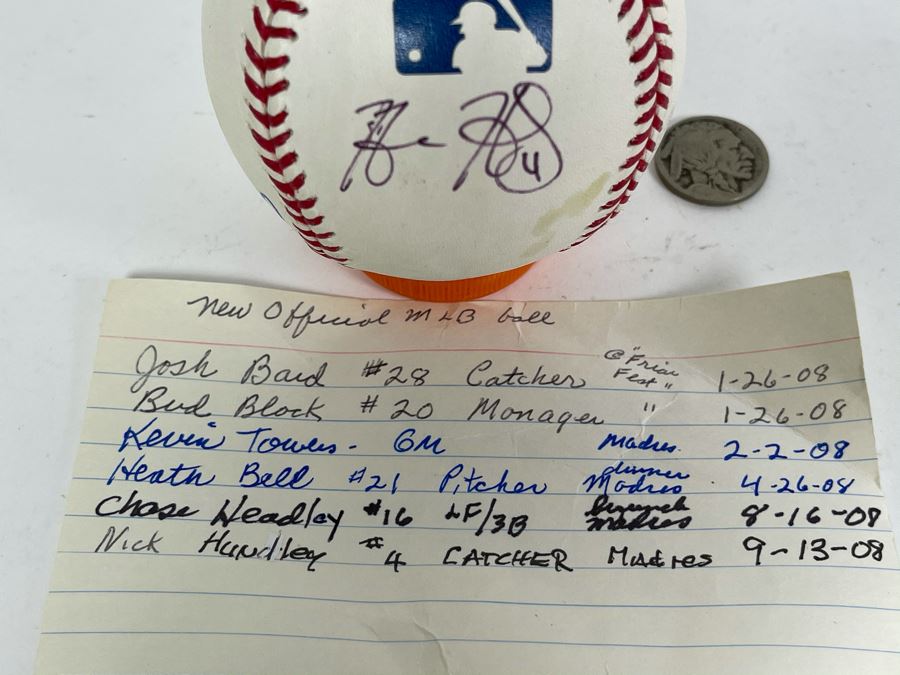 4
New Official MLB ball
Josh Bard #28 Catcher @ "Friar Fest" 1-26-08
Bud Black #20 Manager " 1-26-08
Kevin Towers - GM Madres 2-2-08
Heath Bell #21 Pitcher dinner Madres 4-26-08
Chase Headley #16 LF/3B brunch Madres 8-16-08
Nick Hundley #4 CATCHER Madres 9-13-08